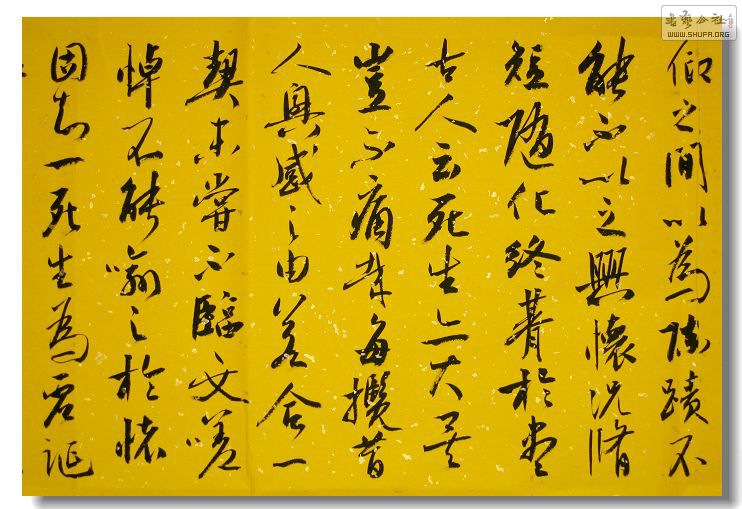 仰之間以為陳蹟不
能不以之興懷況脩
短隨化終朞於盡
古人云死生亦大矣
豈不痛哉每攬昔
人興感之由若合一
契未嘗不臨文嗟
悼不能喻之於懷
固知一死生為虛誕
書藝公社
WWW.SHUFA.ORG